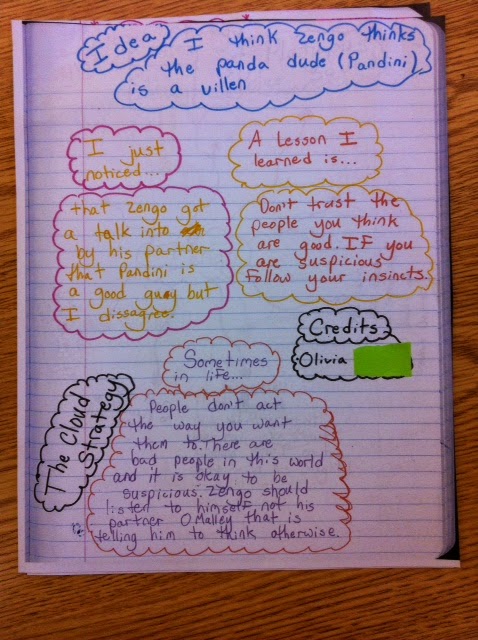 Idea
I think Zengo thinks
the panda dude (Pandini)
is a villen
I just
noticed...
that Zengo got
a talk into
by his partner
that Pandini is
a good guy but
I dissagree.
A Lesson I
learned is...
Don't trust the
people you think
are good. IF you
are suspicious
follow your insincts.
Credits
Olivia
Sometimes
in life...
The Cloud
Strategy
People don't act
the way you want
them to. There are
bad people in this world
and it is okay to be
suspicious. Zengo should
listen to himself not his
partner O'Malley that is
telling him to think otherwise.